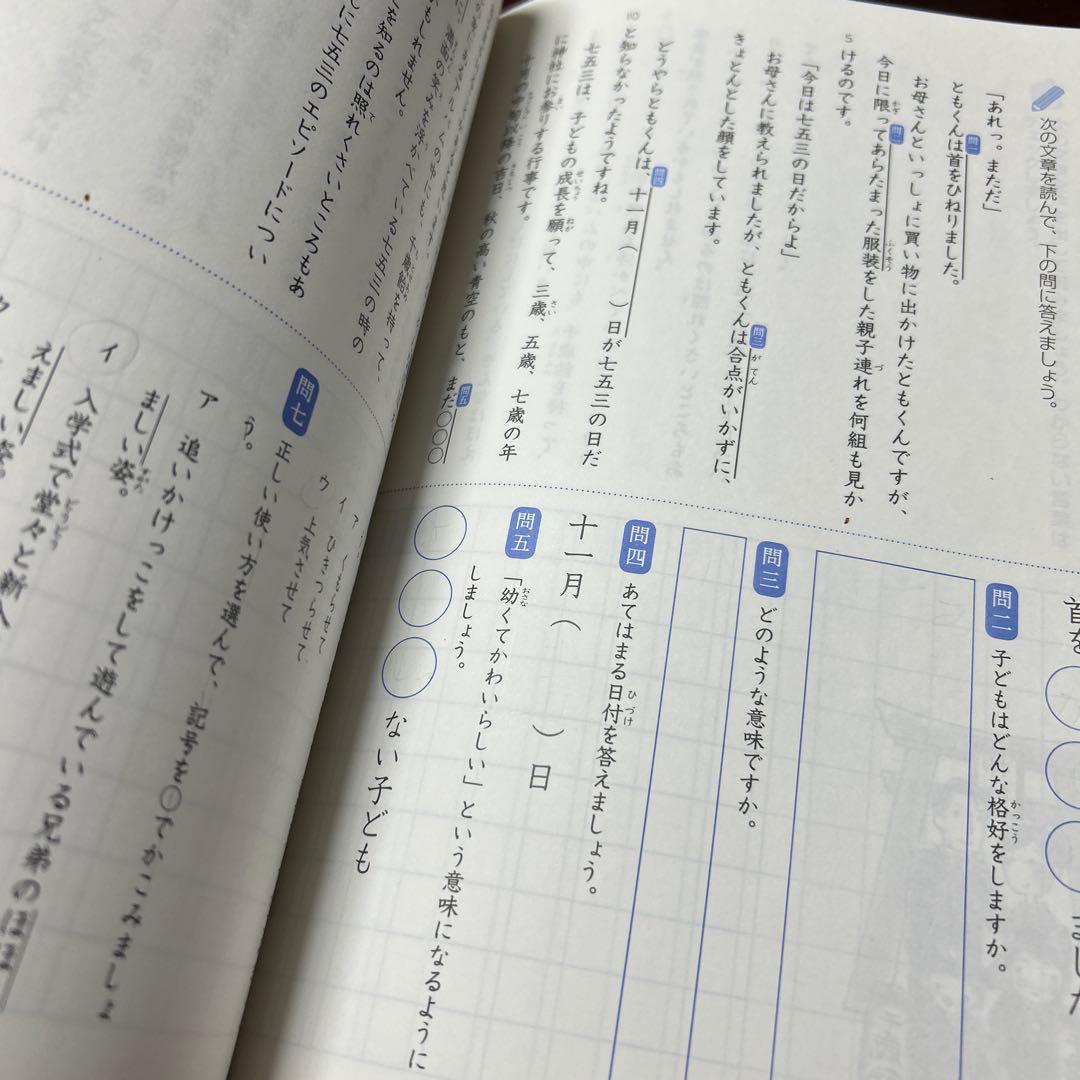 次の文章を読んで、下の問に答えましょう。
「あれっ。まただ」
問一
ともくんは首をひねりました。
お母さんといっしょに買い物に出かけたともくんですが、
問二
今日に限ってあらたまった服装をした親子連れを何組も見か
かぎ
ふくそう
づ
5
けるのです。
「今日は七五三の日だからよ」
問三
がてん
お母さんに教えられましたが、ともくんは合点がいかずに、
きょとんとした顔をしています。
問四
どうやらともくんは、十一月(
)日が七五三の日だ
10
と知らなかったようですね。
七五三は、子どもの成長を願って、三歳、五歳、七歳の年
せいちょう
ねが
さい
に神社にお参りする行事です。
まい
秋の高い青空のもと、まだ〇〇〇
問五
首を
ました
問二
子どもはどんな格好をしますか。
かっこう
問三
どのような意味ですか。
問四
あてはまる日付を答えましょう。
ひづけ
十一月(
)日
問五
「幼くてかわいらしい」という意味になるように
おさな
しましょう。
ない子ども
千歳飴を持って、
の笑みを浮かべている七五三の時の
もしれません。
を知るのは照れくさいところもあ
て
に七五三のエピソードについ
ア
イもらせて
イ
ひきつらせて
ウ
上気させて
問七
正しい使い方を選んで、記号を〇でかこみましょ
う。
ア
追いかけっこをして遊んでいる兄弟のほほ
ましい姿。
イ
入学式で堂々と新入
どうどう
えましい姿。
ウ